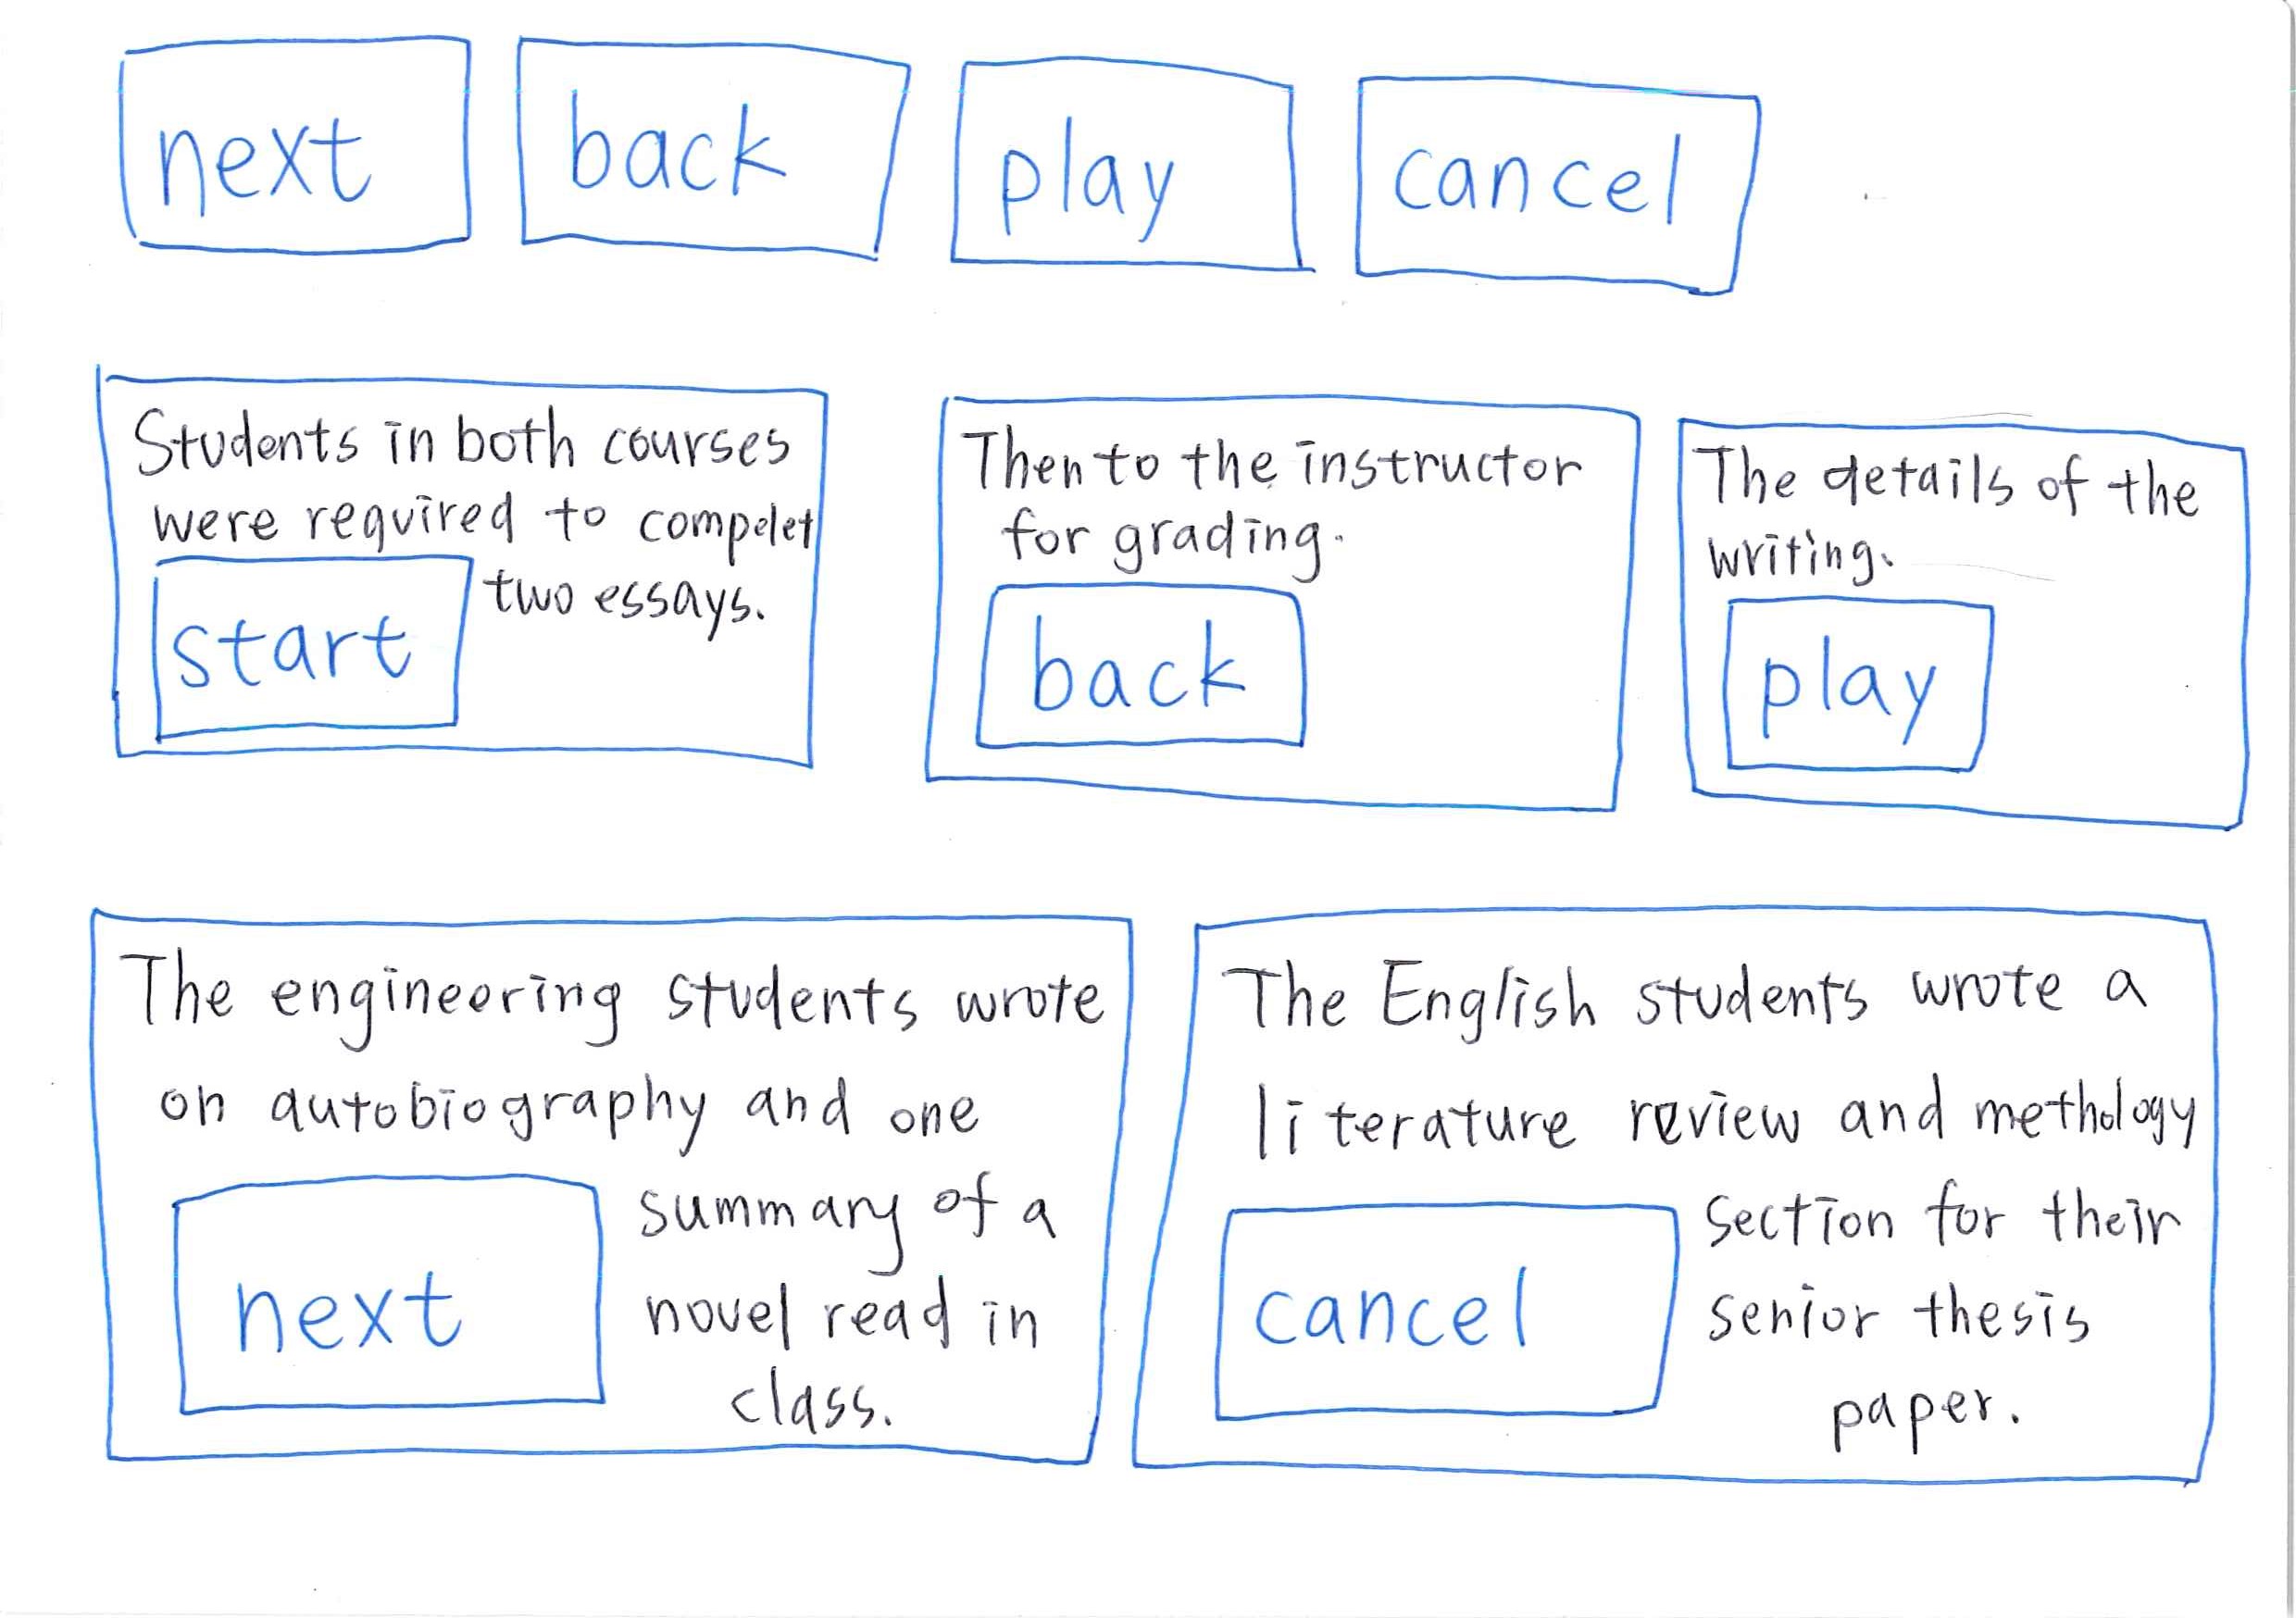 next
back
play
cancel
Students in both courses
were required to compelet
two essays.
start
Then to the instructor
for grading.
back
The details of the
writing.
play
The engineering students wrote
on autobiography and one
summary of a
novel read in
class.
next
The English students wrote a
literature review and methology
section for their
senior thesis
paper.
cancel